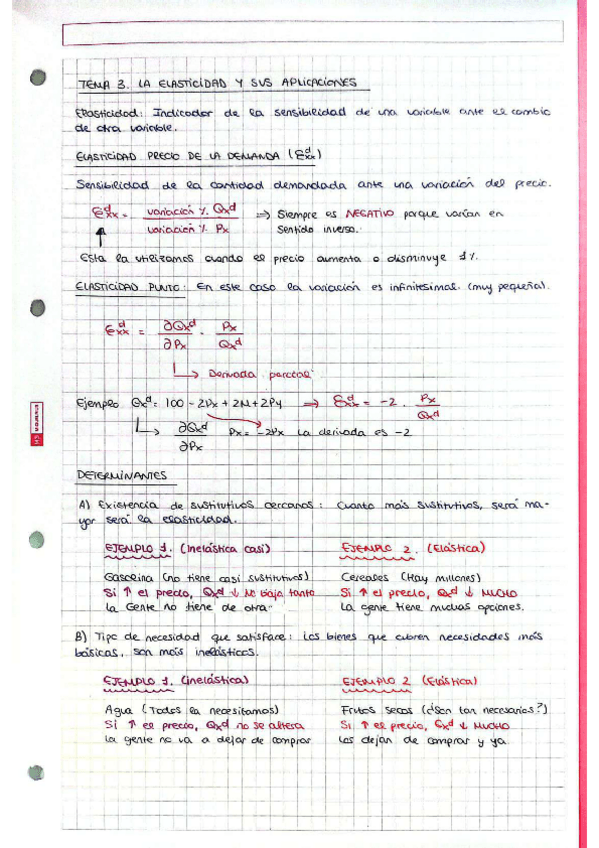 TEMA 3. LA ELASTICIDAD Y SUS APLICACIONES
Elasticidad: Indicador de la sensibilidad de una variable ante el cambio
de otra variable.
ELASTICIDAD PRECIO DE LA DEMANDA (Ɛxxᵈ)
Sensibilidad de la cantidad demandada ante una variación del precio.
Ɛxxᵈ = variación % Qxᵈ / variación % Px ⇒ Siempre es NEGATIVO porque varían en
sentido inverso.
Esta la utilizamos cuando el precio aumenta o disminuye 1%.
ELASTICIDAD PUNTO: En este caso la variación es infinitesimal. (muy pequeña).
Ɛxxᵈ = ∂Qxᵈ / ∂Px · Px / Qxᵈ
↳ Derivada parcial
Ejemplo Qxᵈ = 100 - 2Px + 2M + 2Py ⇒ Ɛxxᵈ = -2 · Px / Qxᵈ
↳ ∂Qxᵈ / ∂Px Px = -2Px La derivada es -2
DETERMINANTES
A) Existencia de sustitutivos cercanos: Cuanto más sustitutivos, será ma-
yor será la elasticidad.
EJEMPLO 1. (Inelástica casi) EJEMPLO 2. (Elástica)
Gasolina (no tiene casi sustitutivos) Cereales (Hay millones)
Si ↑ el precio, Qxᵈ ↓ No baja tanto Si ↑ el precio, Qxᵈ ↓ MUCHO
La Gente no tiene de otra La gente tiene muchas opciones.
B) Tipo de necesidad que satisface: Los bienes que cubren necesidades más
básicas, son más inelásticos.
EJEMPLO 1. (inelástica) EJEMPLO 2 (Elástica)
Agua (Todos la necesitamos) Frutos secos (¿Son tan necesarios?)
Si ↑ el precio, Qxᵈ no se altera Si ↑ el precio, Qxᵈ ↓ MUCHO
La gente no va a dejar de comprar Los dejan de comprar y ya